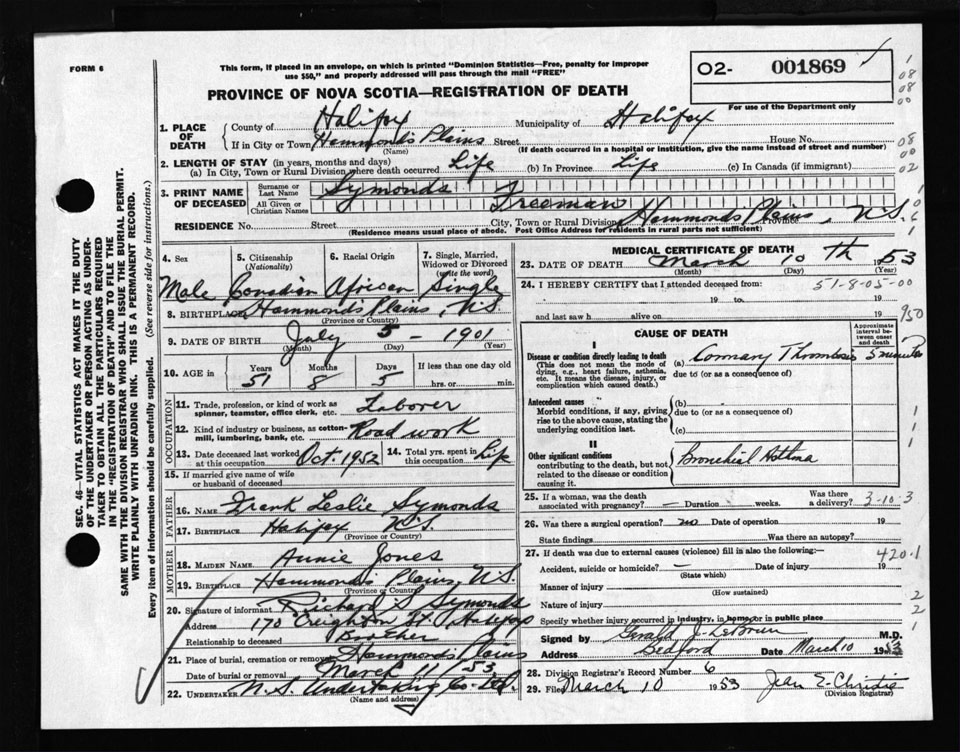 FORM 6
This form, if placed in an envelope, on which is printed "Dominion Statistics—Free, penalty for improper
use $50," and properly addressed will pass through the mail "FREE"
O2- 001869
For use of the Department only
PROVINCE OF NOVA SCOTIA—REGISTRATION OF DEATH
1. PLACE OF DEATH
County of Halifax Municipality of Halifax
If in City or Town Hammonds Plains Street House No.
(Name) (If death occurred in a hospital or institution, give the name instead of street and number)
2. LENGTH OF STAY (in years, months and days)
(a) In City, Town or Rural Division where death occurred Life (b) In Province Life (c) In Canada (if immigrant)
3. PRINT NAME OF DECEASED
Surname or Last Name Symonds
All Given or Christian Names Freeman
RESIDENCE No. Street City, Town or Rural Division Hammonds Plains, Province N.S.
(Residence means usual place of abode. Post Office Address for residents in rural parts not sufficient)
4. Sex Male
5. Citizenship (Nationality) Canadian
6. Racial Origin African
7. Single, Married, Widowed or Divorced (write the word) Single
8. BIRTHPLACE Hammonds Plains, N.S.
(Province or Country)
9. DATE OF BIRTH July 5 - 1901
(Month) (Day) (Year)
10. AGE in Years 51 Months 8 Days 5 If less than one day old hrs. or min.
OCCUPATION
11. Trade, profession, or kind of work as spinner, teamster, office clerk, etc. Laborer
12. Kind of industry or business, as cotton-mill, lumbering, bank, etc. Road work
13. Date deceased last worked at this occupation Oct. 1952
14. Total yrs. spent in this occupation Life
15. If married give name of wife or husband of deceased
FATHER
16. NAME Frank Leslie Symonds
17. BIRTHPLACE Halifax N.S.
(Province or Country)
MOTHER
18. MAIDEN NAME Annie Jones
19. BIRTHPLACE Hammonds Plains, N.S.
(Province or Country)
20. Signature of informant Richard S. Symonds
Address 170 Creighton St. Halifax
Relationship to deceased Brother
21. Place of burial, cremation or removal Hammonds Plains
Date of burial or removal March 11 53
22. UNDERTAKER N.S. Undertaking Co. Ltd.
(Name and address)
MEDICAL CERTIFICATE OF DEATH
23. DATE OF DEATH March 10th 1953
(Month) (Day) (Year)
24. I HEREBY CERTIFY that I attended deceased from:
51-8-05-00
19 to 19
and last saw h alive on 19
950
CAUSE OF DEATH
Approximate interval between onset and death
I
Disease or condition directly leading to death (a) Coronary Thrombosis 5 minutes
(This does not mean the mode of dying, e.g., heart failure, asthenia, etc. It means the disease, injury, or complication which caused death.)
due to (or as a consequence of)
Antecedent causes (b)
Morbid conditions, if any, giving rise to the above cause, stating the underlying condition last.
due to (or as a consequence of)
(c)
II
Other significant conditions Bronchial Asthma
contributing to the death, but not related to the disease or condition causing it.
25. If a woman, was the death associated with pregnancy? — Duration weeks. Was there a delivery? 3-10-3
26. Was there a surgical operation? no Date of operation 19
State findings Was there an autopsy?
27. If death was due to external causes (violence) fill in also the following:— 420.1
Accident, suicide or homicide? — Date of injury 19
(State which)
Manner of injury
(How sustained)
Nature of injury
Specify whether injury occurred in industry, in home, or in public place
Signed by Gerald J. LeBrun M.D.
Address Bedford Date March 10 1953
28. Division Registrar's Record Number 6
29. Filed March 10 1953 Jean E. Christie
(Division Registrar)
SEC. 46—VITAL STATISTICS ACT MAKES IT THE DUTY
OF THE UNDERTAKER OR PERSON ACTING AS UNDER-
TAKER TO OBTAIN ALL THE PARTICULARS REQUIRED
IN THE "REGISTRATION OF DEATH" AND TO FILE THE
SAME WITH THE DIVISION REGISTRAR WHO SHALL ISSUE THE BURIAL PERMIT.
WRITE PLAINLY WITH UNFADING INK. THIS IS A PERMANENT RECORD.
Every item of information should be carefully supplied. (See reverse side for instructions.)